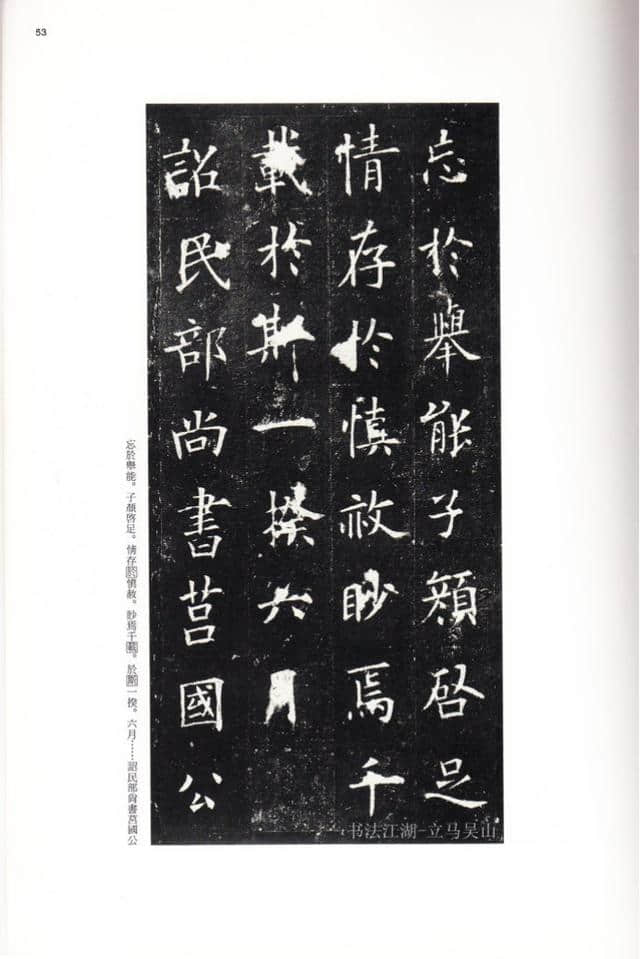 53
忘於舉能子顏啓足
情存於慎赦眇焉千
載於斯一揆六月
詔民部尚書莒國公
忘於舉能。子顏啓足。情存於慎赦。眇焉千載。於斯一揆。六月……詔民部尚書莒國公
书法江湖-立马吴山